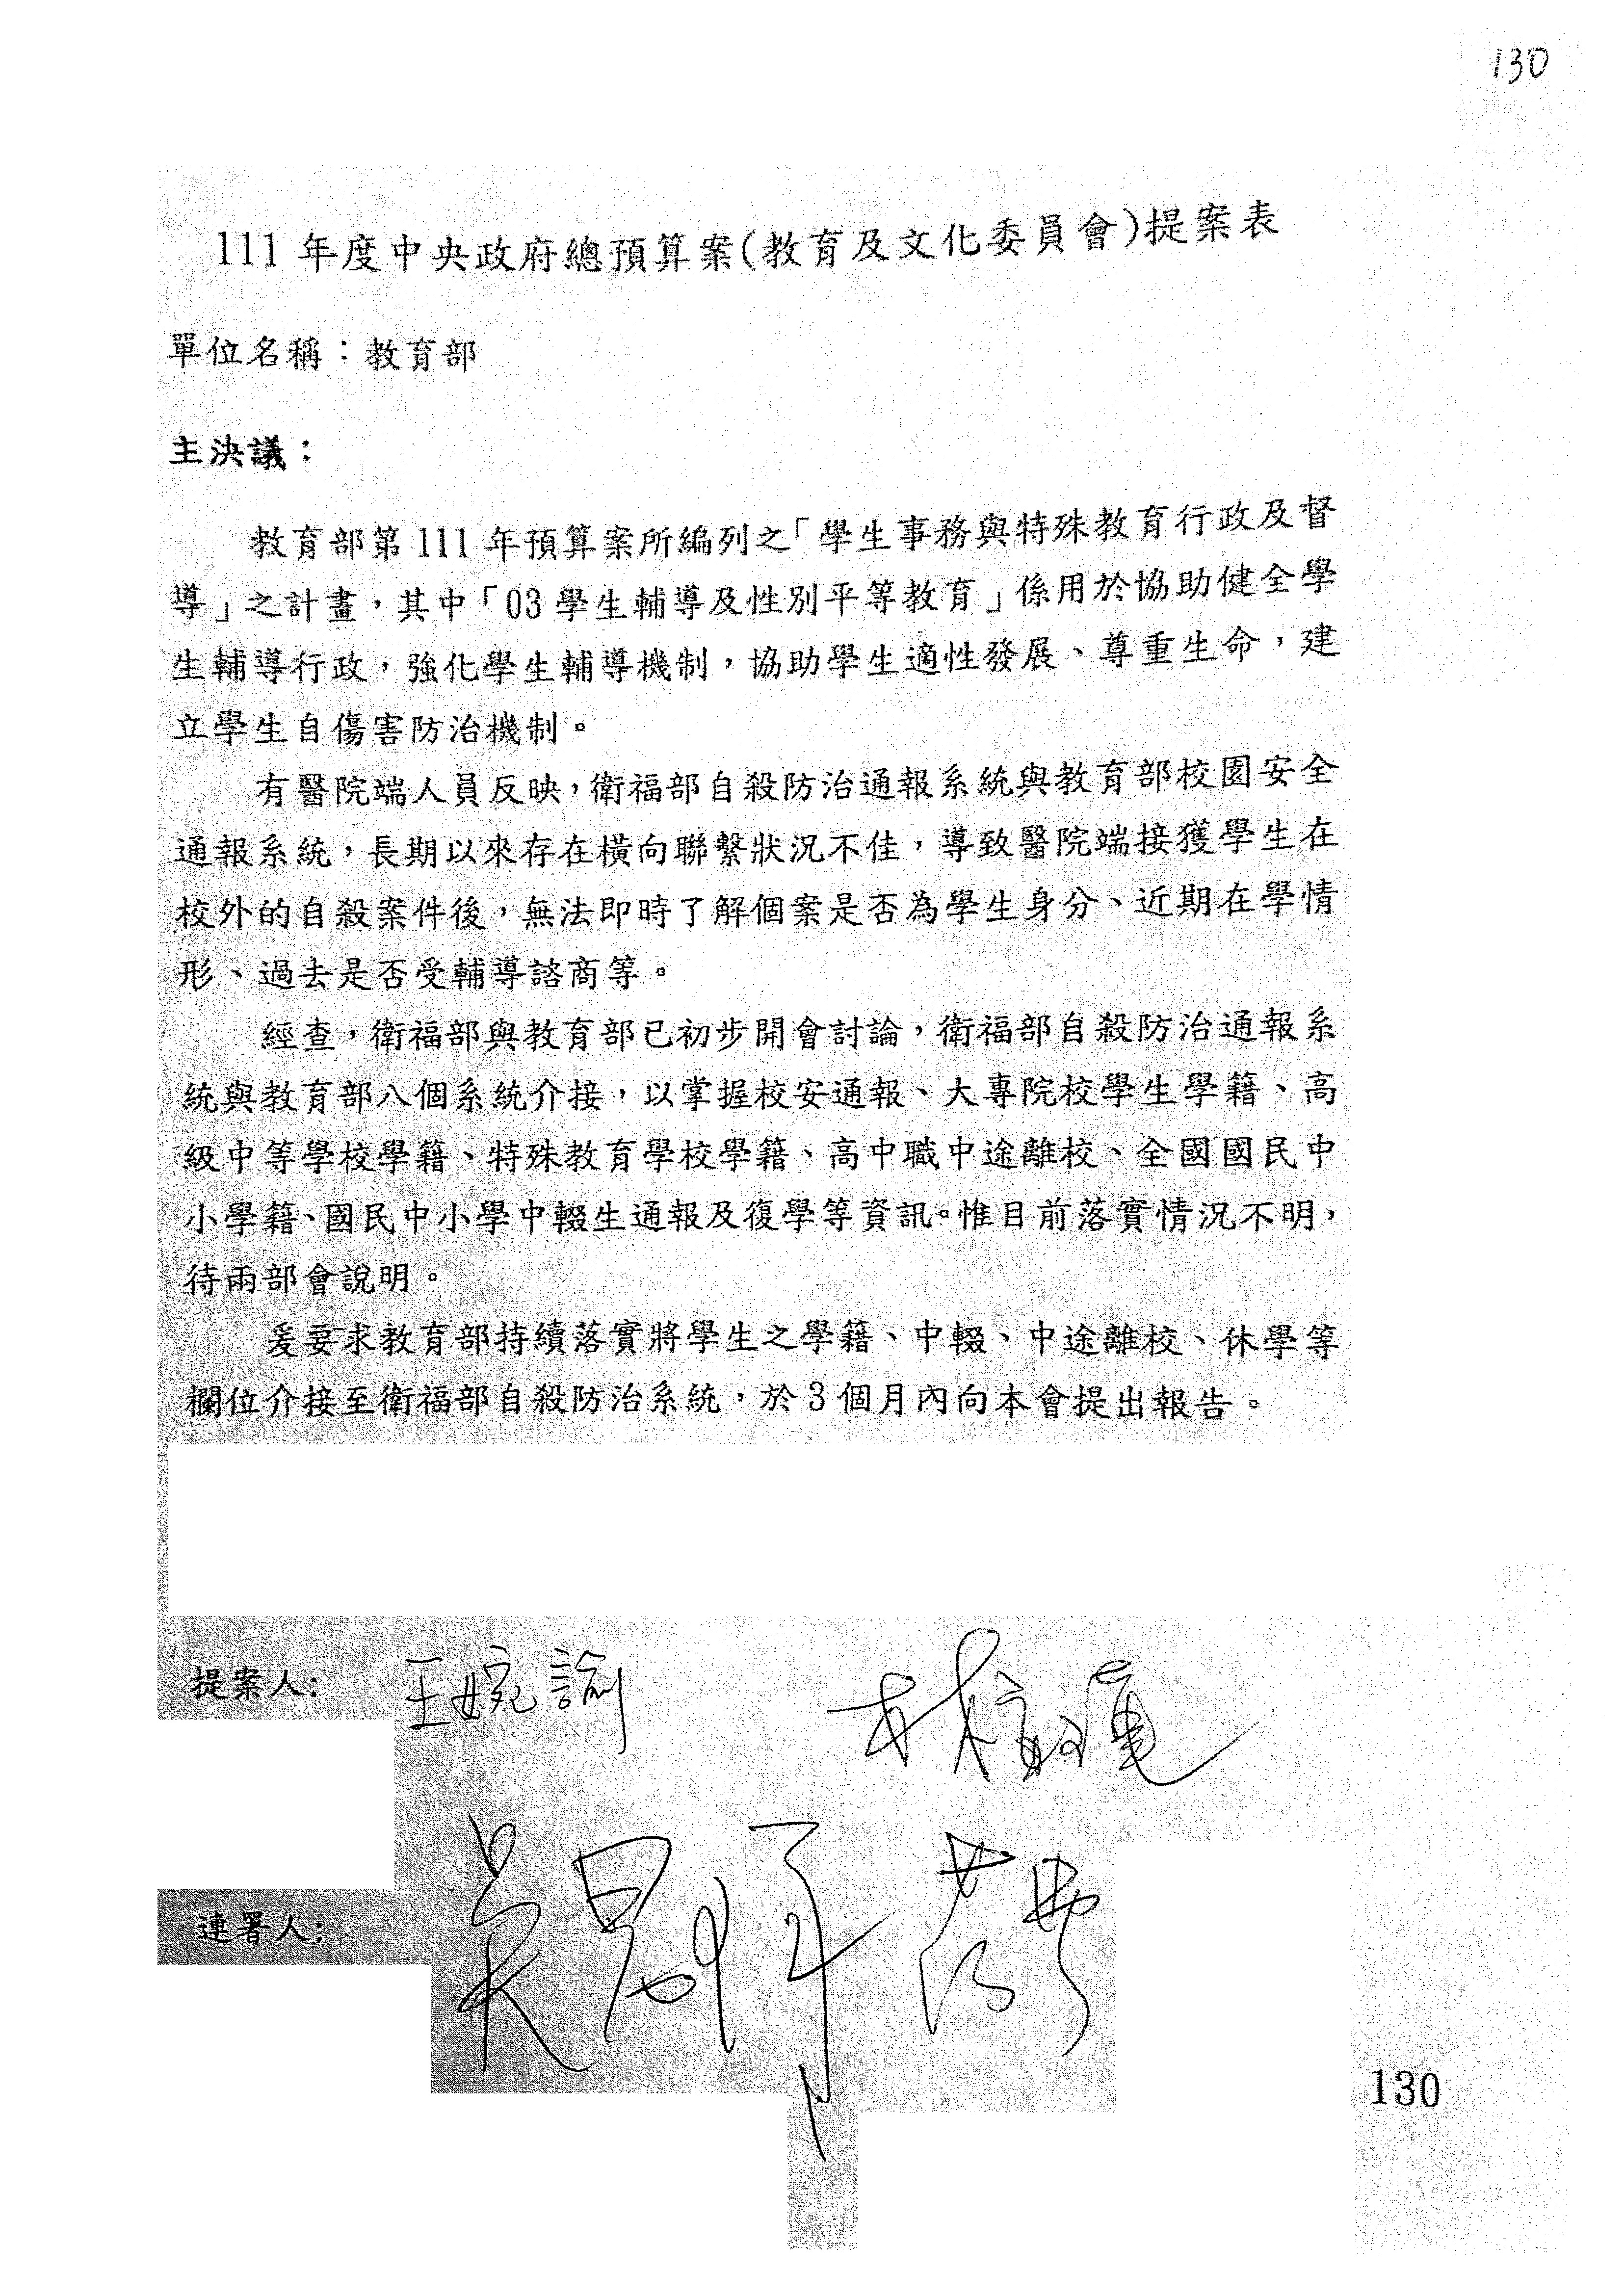 130
111 年度中央政府總預算案(教育及文化委員會)提案表
單位名稱：教育部
主決議：
教育部第 111 年預算案所編列之「學生事務與特殊教育行政及督
導」之計畫，其中「03 學生輔導及性別平等教育」係用於協助健全學
生輔導行政，強化學生輔導機制，協助學生適性發展、尊重生命，建
立學生自傷害防治機制。
有醫院端人員反映，衛福部自殺防治通報系統與教育部校園安全
通報系統，長期以來存在橫向聯繫狀況不佳，導致醫院端接獲學生在
校外的自殺案件後，無法即時了解個案是否為學生身分、近期在學情
形、過去是否受輔導諮商等。
經查，衛福部與教育部已初步開會討論，衛福部自殺防治通報系
統與教育部八個系統介接，以掌握校安通報、大專院校學生學籍、高
級中等學校學籍、特殊教育學校學籍、高中職中途離校、全國國民中
小學籍、國民中小學中輟生通報及復學等資訊。惟目前落實情況不明，
待兩部會說明。
爰要求教育部持續落實將學生之學籍、中輟、中途離校、休學等
欄位介接至衛福部自殺防治系統，於 3 個月內向本會提出報告。
提案人: 王婉諭
連署人:
130